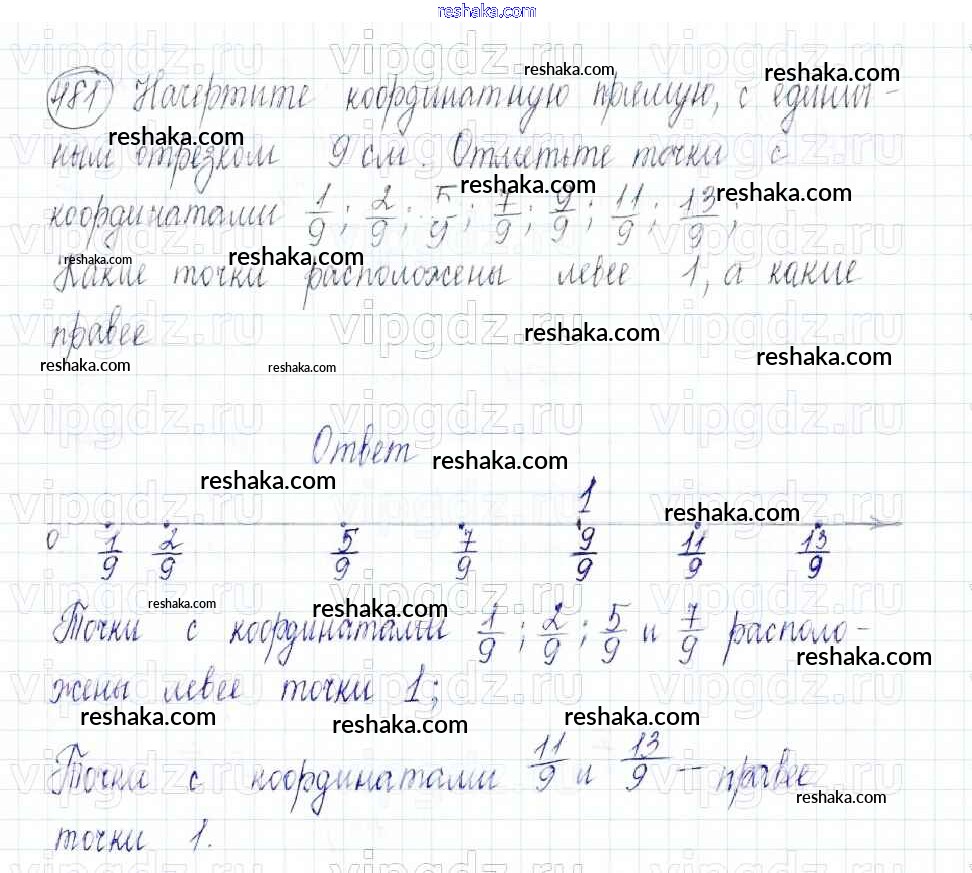 reshaka.com
481 Начертите координатную прямую, с единич-
ным отрезком 9 см. Отметьте точки с
координатами 1/9; 2/9; 5/9; 7/9; 9/9; 11/9; 13/9;
Какие точки расположены левее 1, а какие
правее
Ответ
1
0 1/9 2/9 5/9 7/9 9/9 11/9 13/9
Точки с координатами 1/9; 2/9; 5/9 и 7/9 располо-
жены левее точки 1;
Точки с координатами 11/9 и 13/9 — правее
точки 1.
vipgdz.ru